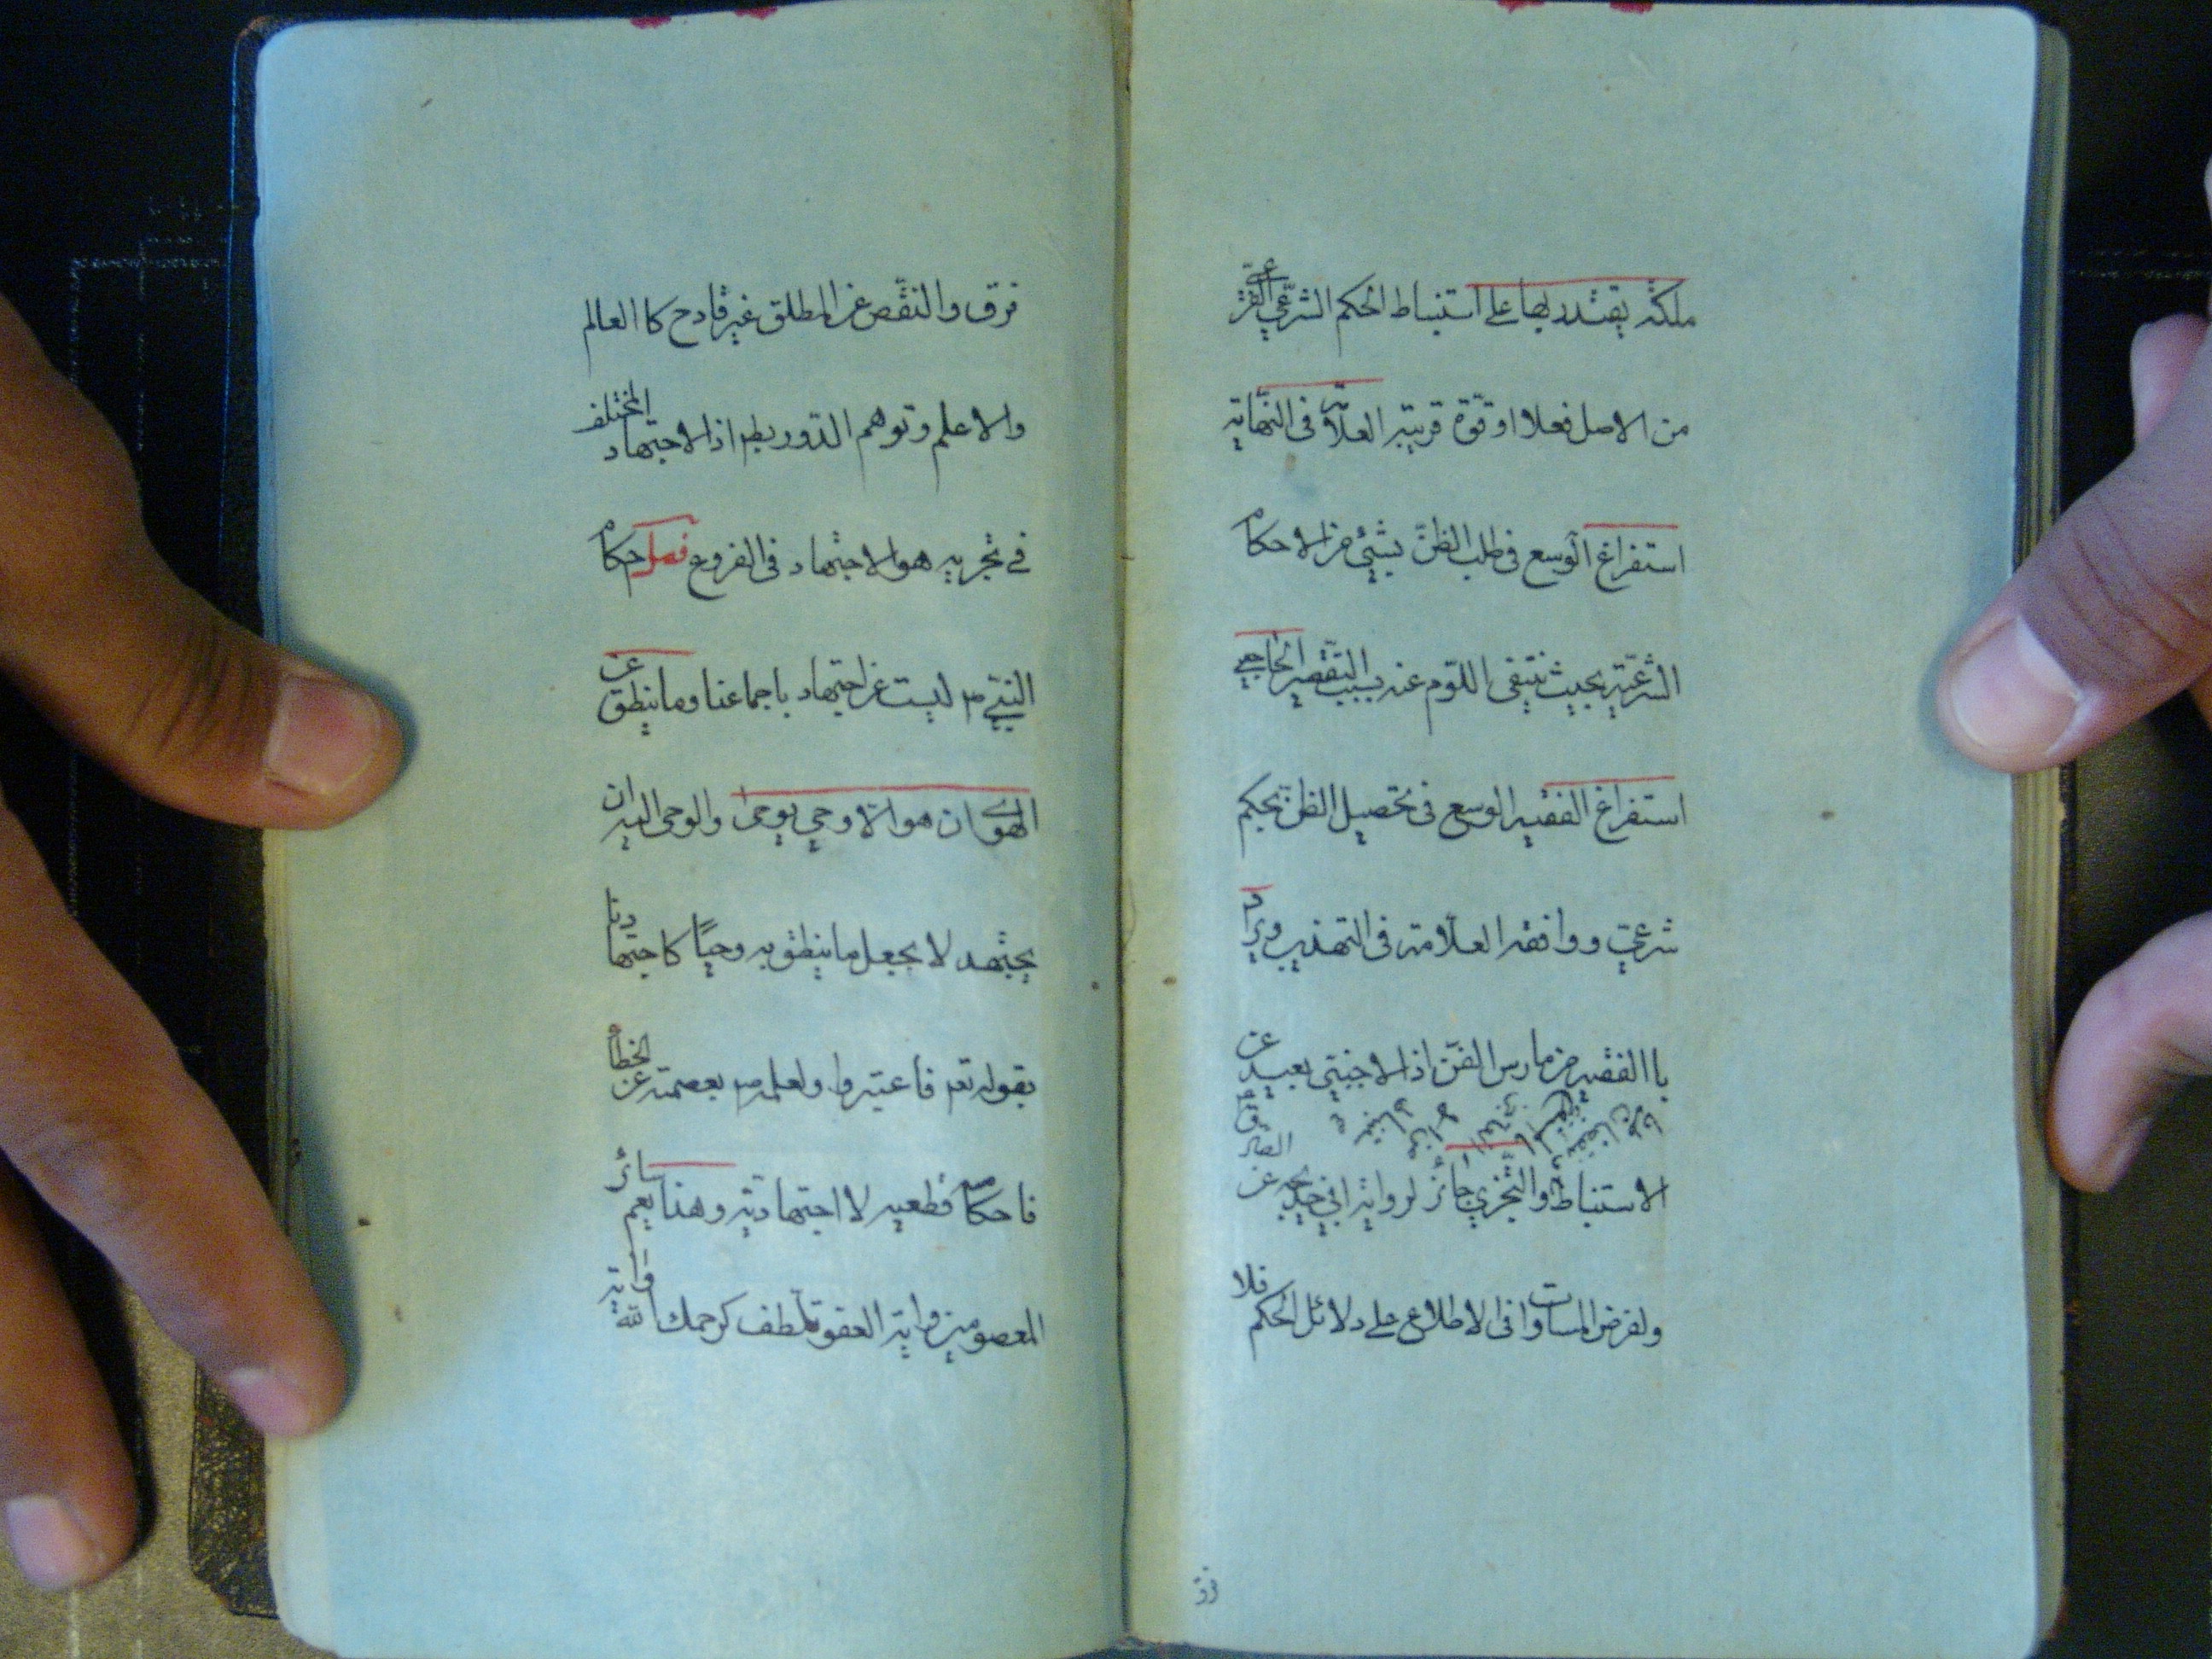 ملكة يقتدر بها على استنباط الحكم الشرعي الفرعي
من الاصل فعلا او قوة قريبة العلامة فى النهاية
استفراغ الوسع فى طلب الظن بشئ من الاحكام
الشرعية بحيث ينتفى اللوم عنه بسبب التقصير الحاجبي
استفراغ الفقيه الوسع فى تحصيل الظن بحكم
شرعي ووافقه العلامة فى التهذيب ويراد
با الفقيه من مارس الفن اذ الاجنبي بعيد عن
الاستنباط والتجزي جائز لرواية ابي خديجه عن
الصادق
ولفرض المساوات فى الاطلاع على دلائل الحكم فلا
فوق
فرق والنقص عن المطلق غير قادح كا العالم
والاعلم وتوهم الدور بط اذ الاجتهاد المختلف
فے تجزيه هو الاجتهاد فى الفروع فصل احكام
النبي ص ليست عن اجتهاد باجماعنا وما ينطق عن
الهوى ان هو الا وحي يوحى والوحى اليه ان
يجتهد لا يجعل ما ينطق به وحيا كا جتهادنا
بقوله تعم فاعتبروا ولعلمه بعصمته عن الخطأ
فاحكامه قطعيه لا اجتهاديته وهذا يعم سائر
المعصومين ورواية العفو تلطف كرحمك الله وآية